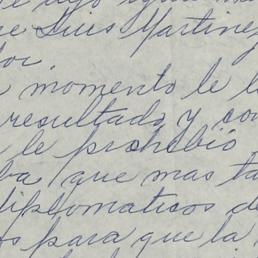 e Luis Martinez
or.
momento le l
resultado y con
le prohibió
ba, que mas ta
diplomaticos de
os para que la